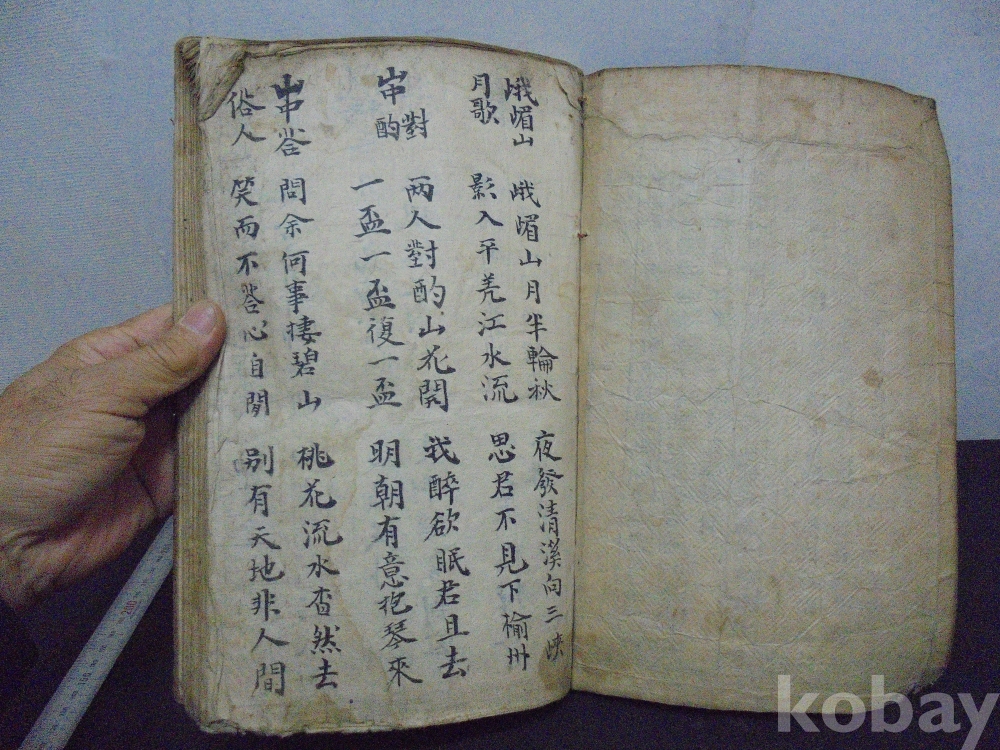 峨嵋山
月歌
峨嵋山月半輪秋 夜發清溪向三峽
影入平羌江水流 思君不見下榆州
山中對
酌
两人對酌山花開 我醉欲眠君且去
一盃一盃復一盃 明朝有意抱琴來
山中答
俗人
問余何事棲碧山 桃花流水杳然去
笑而不答心自閒 别有天地非人間
kobay